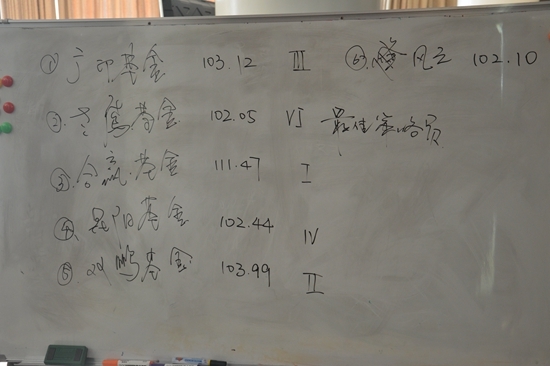 ① 广印基金 103.12 III
② 雄鹰基金 102.05 VI 最佳策略员
③ 合赢基金 111.47 I
④ 昆阳基金 102.44 IV
⑤ 鹏基金 103.99 II
⑥ 风云 102.10